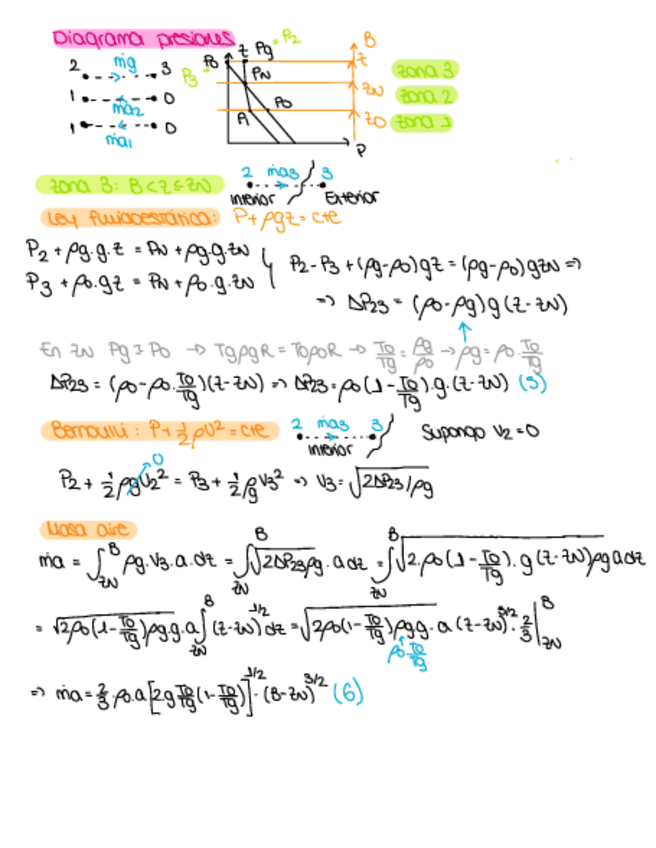 Diagrama presiones
2 ṁg 3
1 ṁa2 0
1 ṁa1 0
P3 P0 z Pg P2
PN
A P0
P
B
z
zN
z0
zona 3
zona 2
zona 1
zona 3: B<z≤zN
2 ṁa3 3
Interior Exterior
Ley fluidoestática: P+ρgz=cte
P2+ρg.g.z = PN+ρg.g.zN
P3+ρ0.gz = PN+ρ0.g.zN
P2-P3+(ρg-ρ0)gz=(ρg-ρ0)gzN =>
=> ΔP23 = (ρ0-ρg)g(z-zN)
En zN Pg=P0 → TgρgR=T0ρ0R → T0/Tg=ρg/ρ0 → ρg=ρ0.T0/Tg
ΔP23=(ρ0-ρ0.T0/Tg)(z-zN) => ΔP23=ρ0(1-T0/Tg).g.(z-zN) (5)
Bernoulli: P+½ρv²=cte
2 ṁa3 3
Interior
Supongo V2=0
P2+½ρgV2²=P3+½ρgV3² => V3=√2ΔP23/ρg
0
Masa aire
ṁa=∫zN^B ρg.V3.a.dz=∫zN^B √2ΔP23ρg.adz=∫zN^B √2.ρ0(1-T0/Tg).g(z-zN)ρg adz
=√2ρ0(1-T0/Tg)ρg.g.a∫zN^B (z-zN)^1/2 dz=√2ρ0(1-T0/Tg)ρg.g.a(z-zN)^3/2.2/3|zN^B
ρ0.T0/Tg
=> ṁa=2/3.ρ0.a[2gT0/Tg(1-T0/Tg)]^1/2.(B-zN)^3/2 (6)